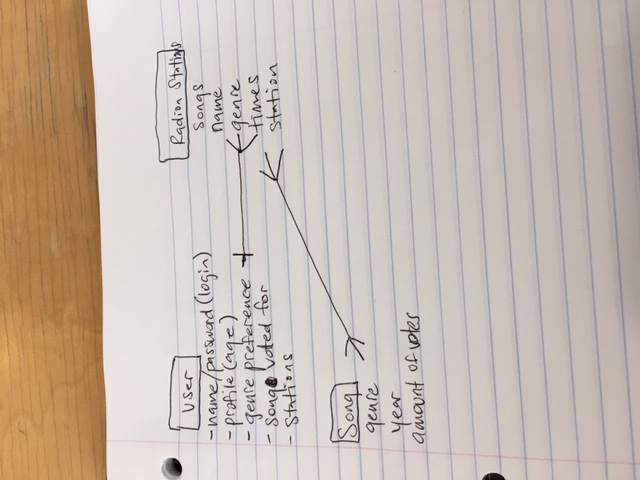 User
- name/password (login)
- profile (age)
- genre preference
- song voted for
- stations
Radion Stations
songs
name
genre
times
station
Song
genre
year
amount of votes